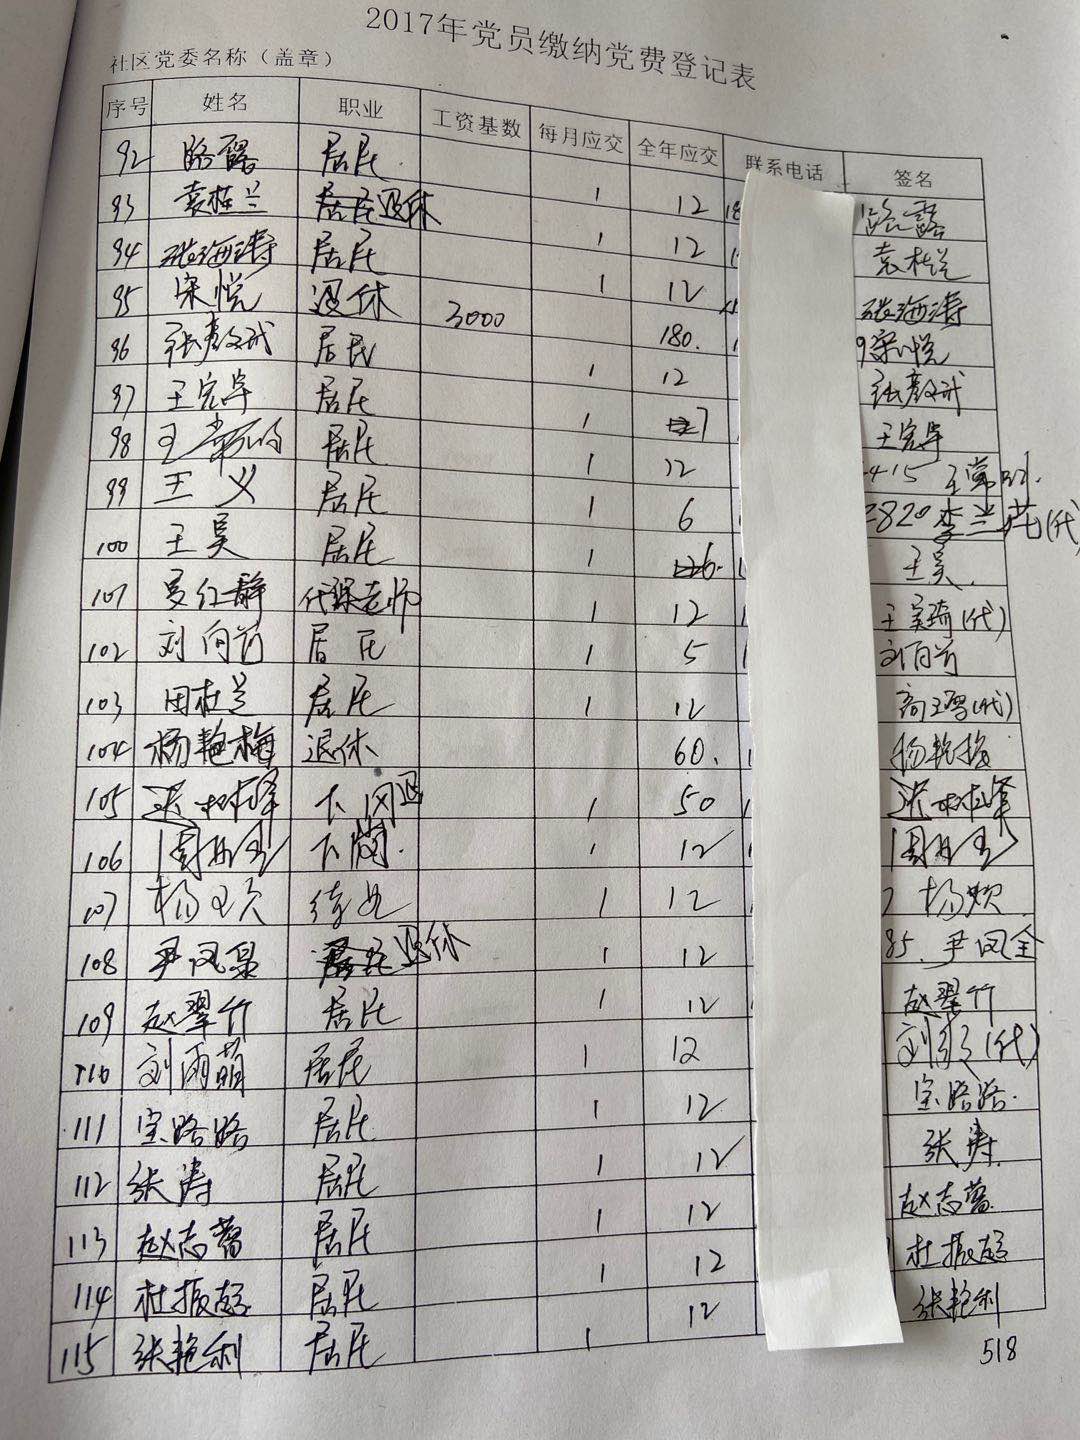 2017年党员缴纳党费登记表
社区党委名称（盖章）
序号 姓名 职业 工资基数 每月应交 全年应交 联系电话 签名
92 路露 居民 1 12 18 路露
93 袁桂兰 居民退休 1 12 1 袁桂兰
94 张海涛 居民 1 12 张海涛
95 宋悦 退休 3000 180. 1 9宋悦
96 张彦斌 居民 1 12 张彦斌
97 王宪军 居民 1 7 王宪军
98 王常 居民 1 12 415 王常
99 王义 居民 1 6 1 2820 李兰花(代)
100 王昊 居民 1 6. 王昊
101 红静 代课老师 1 12 1 王昊琦(代)
102 刘向前 居民 1 5 1 刘向前
103 田桂兰 居民 1 12 (代)
104 杨艳梅 退休 60. 1 杨艳梅
105 张树峰 下冈退 1 50 1 张树峰
106 周 下岗. 1 12 周
107 杨欢 待业 1 12 杨欢
108 尹凤 居民退休 1 12 85. 尹凤全
109 赵翠竹 居民 1 12 赵翠竹
110 刘雨萌 居民 1 12 刘 (代)
111 宝路路 居民 1 12 宝路路.
112 张涛 居民 1 12 张涛
113 赵志蕾 居民 1 12 赵志蕾
114 杜振超 居民 1 12 杜振超
115 张艳利 居民 1 12 张艳利
518